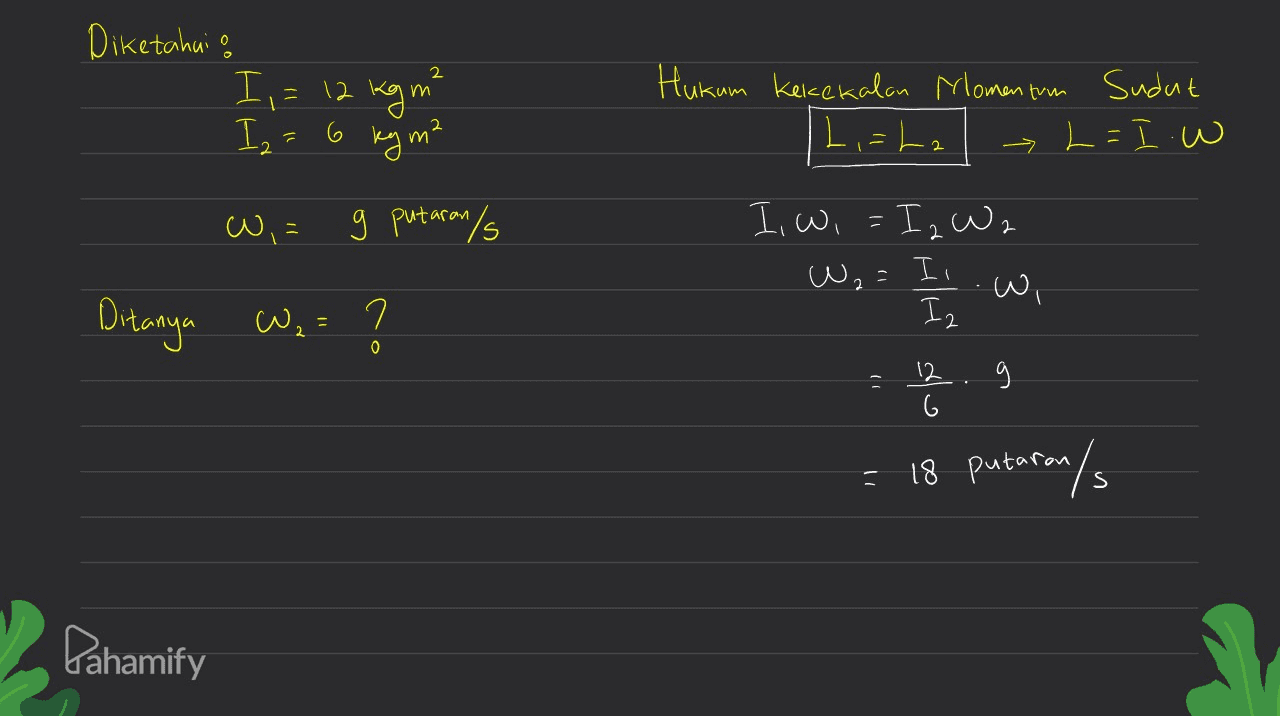 Diketahui :
I₁ = 12 kg m²
I₂ = 6 kg m²
ω₁ = 9 putaran/s
Ditanya ω₂ = ?
Hukum kekekalan Momentum Sudut
L₁ = L₂ → L = I · ω
I₁ ω₁ = I₂ ω₂
ω₂ = I₁/I₂ · ω₁
= 12/6 · 9
= 18 putaran/s
Pahamify